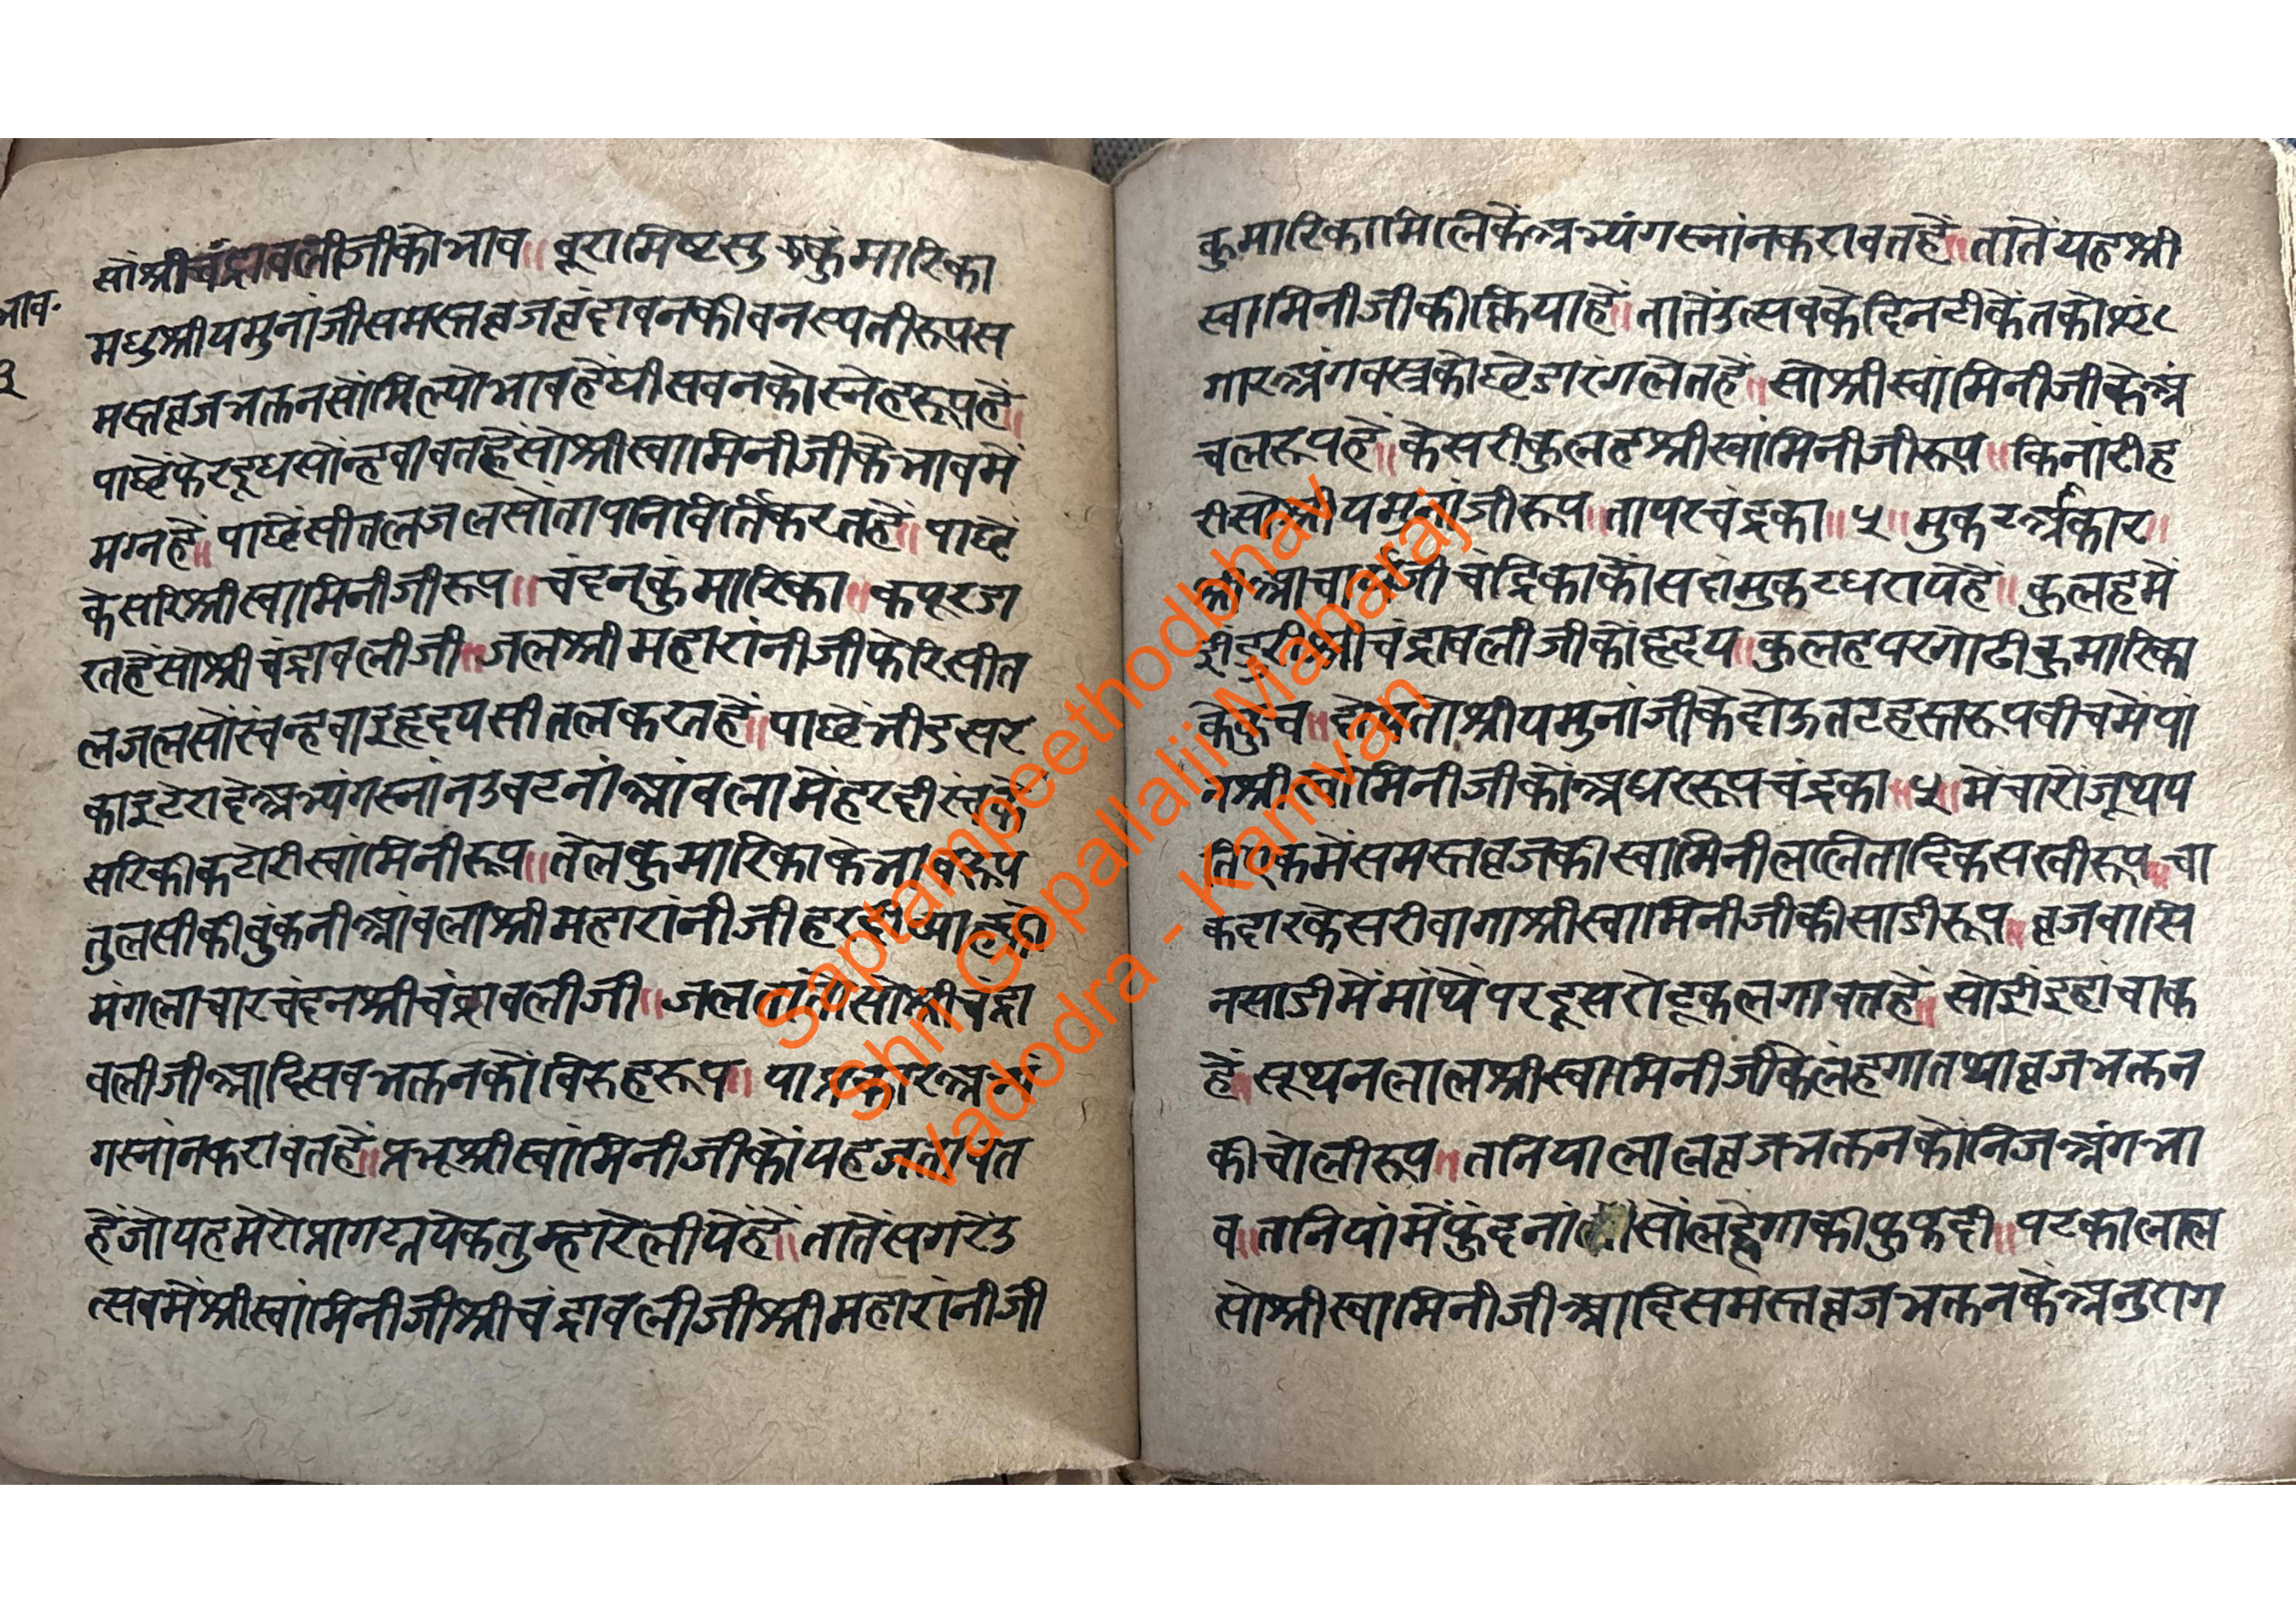 भाव.
३
सोश्रीचंद्रावलीजीकोभाव॥ बूरामिष्टसु कुंमारिका
मधुश्रीयमुनांजीसमस्तव्रजवृंदावनकीवनस्पतीरूपस
मस्तव्रजभक्तनसोंमिल्योभावहैघीसवनकोस्नेहरूपहै॥
पाछेंफेरदूधसोंन्हवावतहैंसोश्रीस्वामिनीजीकेभावमें
मग्नहै॥ पाछेंसीतलजलसोंतापनिवर्तिकरतहै॥ पाछें
केसरिश्रीस्वामिनीजीरूप॥ चंदनकुंमारिका॥ कपूरडा
रतहैंसोश्रीचंद्रावलीजी॥ जलश्रीमहारांनीजीफेरिसीत
लजलसोंन्हवाइहृदयसीतलकरतहैं॥ पाछेंभीडसर
काइटेरादेअभ्यंगस्नांनउबटनांआंवलामेंहरदी
सरिकीकटोरीस्वांमिनीरूप॥ तेलकुमारिकाकेभाव
तुलसीकीबुकनीआंवलाश्रीमहारांनीजी
मंगलाचारचंदनश्रीचंद्रावलीजी॥ जल सोश्रीचंद्रा
वलीजीआदिसबभक्तनकोंविरुहरूप॥
गस्नांनकरावतहैं॥ प्रभूश्रीस्वांमिनीजीकोंयहजतावत
हैंजोयहमेरोप्रागट्यएकतुम्हारेलीयेंहै॥ तातेंसगरेउ
त्सवमेंश्रीस्वांमिनीजीश्रीचंद्रावलीजीश्रीमहारांनीजी
कुमारिकामिलिकेंअभ्यंगस्नांनकरावतहैं॥ तातेंयहश्री
स्वामिनीजीकीक्रियाहैं॥ तातेंउत्सवकेदिनटीकेंतकोश्रृं
गारअंगवस्त्रकोछेडारंगलेतहैं॥ सोश्रीस्वांमिनीजीकेअं
चलरूपहैं॥ केसरीकुलहश्रीस्वांमिनीजीरूप॥ किनांरीह
रीसोश्रीयमुनांजीरूप॥ तापरचंद्रका॥ ५॥ मुकटआकार॥
श्रीआचार्यजीचंद्रिकाकोंसदांमुकटधरायेहैं॥ कुलहमें
श्रीचंद्रावलीजीकोहृदय॥ कुलहपरगोटीकुमारिका
श्रीयमुनांजीकेदोऊतटहस्तरूपवीचमेंपां
नश्रीस्वांमिनीजीकोअधररूपचंद्रका॥ ५॥ मेंचारोंजूथप
तिएकमेंसमस्तव्रजकीस्वामिनीललितादिकसखीरूप॥ चा
कदारकेसरीवागाश्रीस्वामिनीजीकीसाडीरूप॥ व्रजवासि
नसाडीमेंमांथेंपरदूसरोटूकलगावतहैं॥ सोइहांचाक
हैं॥ सूथनलालश्रीस्वामिनीजीकेलंहगातथाव्रजभक्तन
कीचोलीरूप॥ तनियालालव्रजभक्तनकोनिजअंगभा
व॥ तनियांमेंफुंदनां सोलहेंगाकीफुफदी॥ पटकालाल
सोश्रीस्वामिनीजीआदिसमस्तव्रजभक्तनकेअनुराग